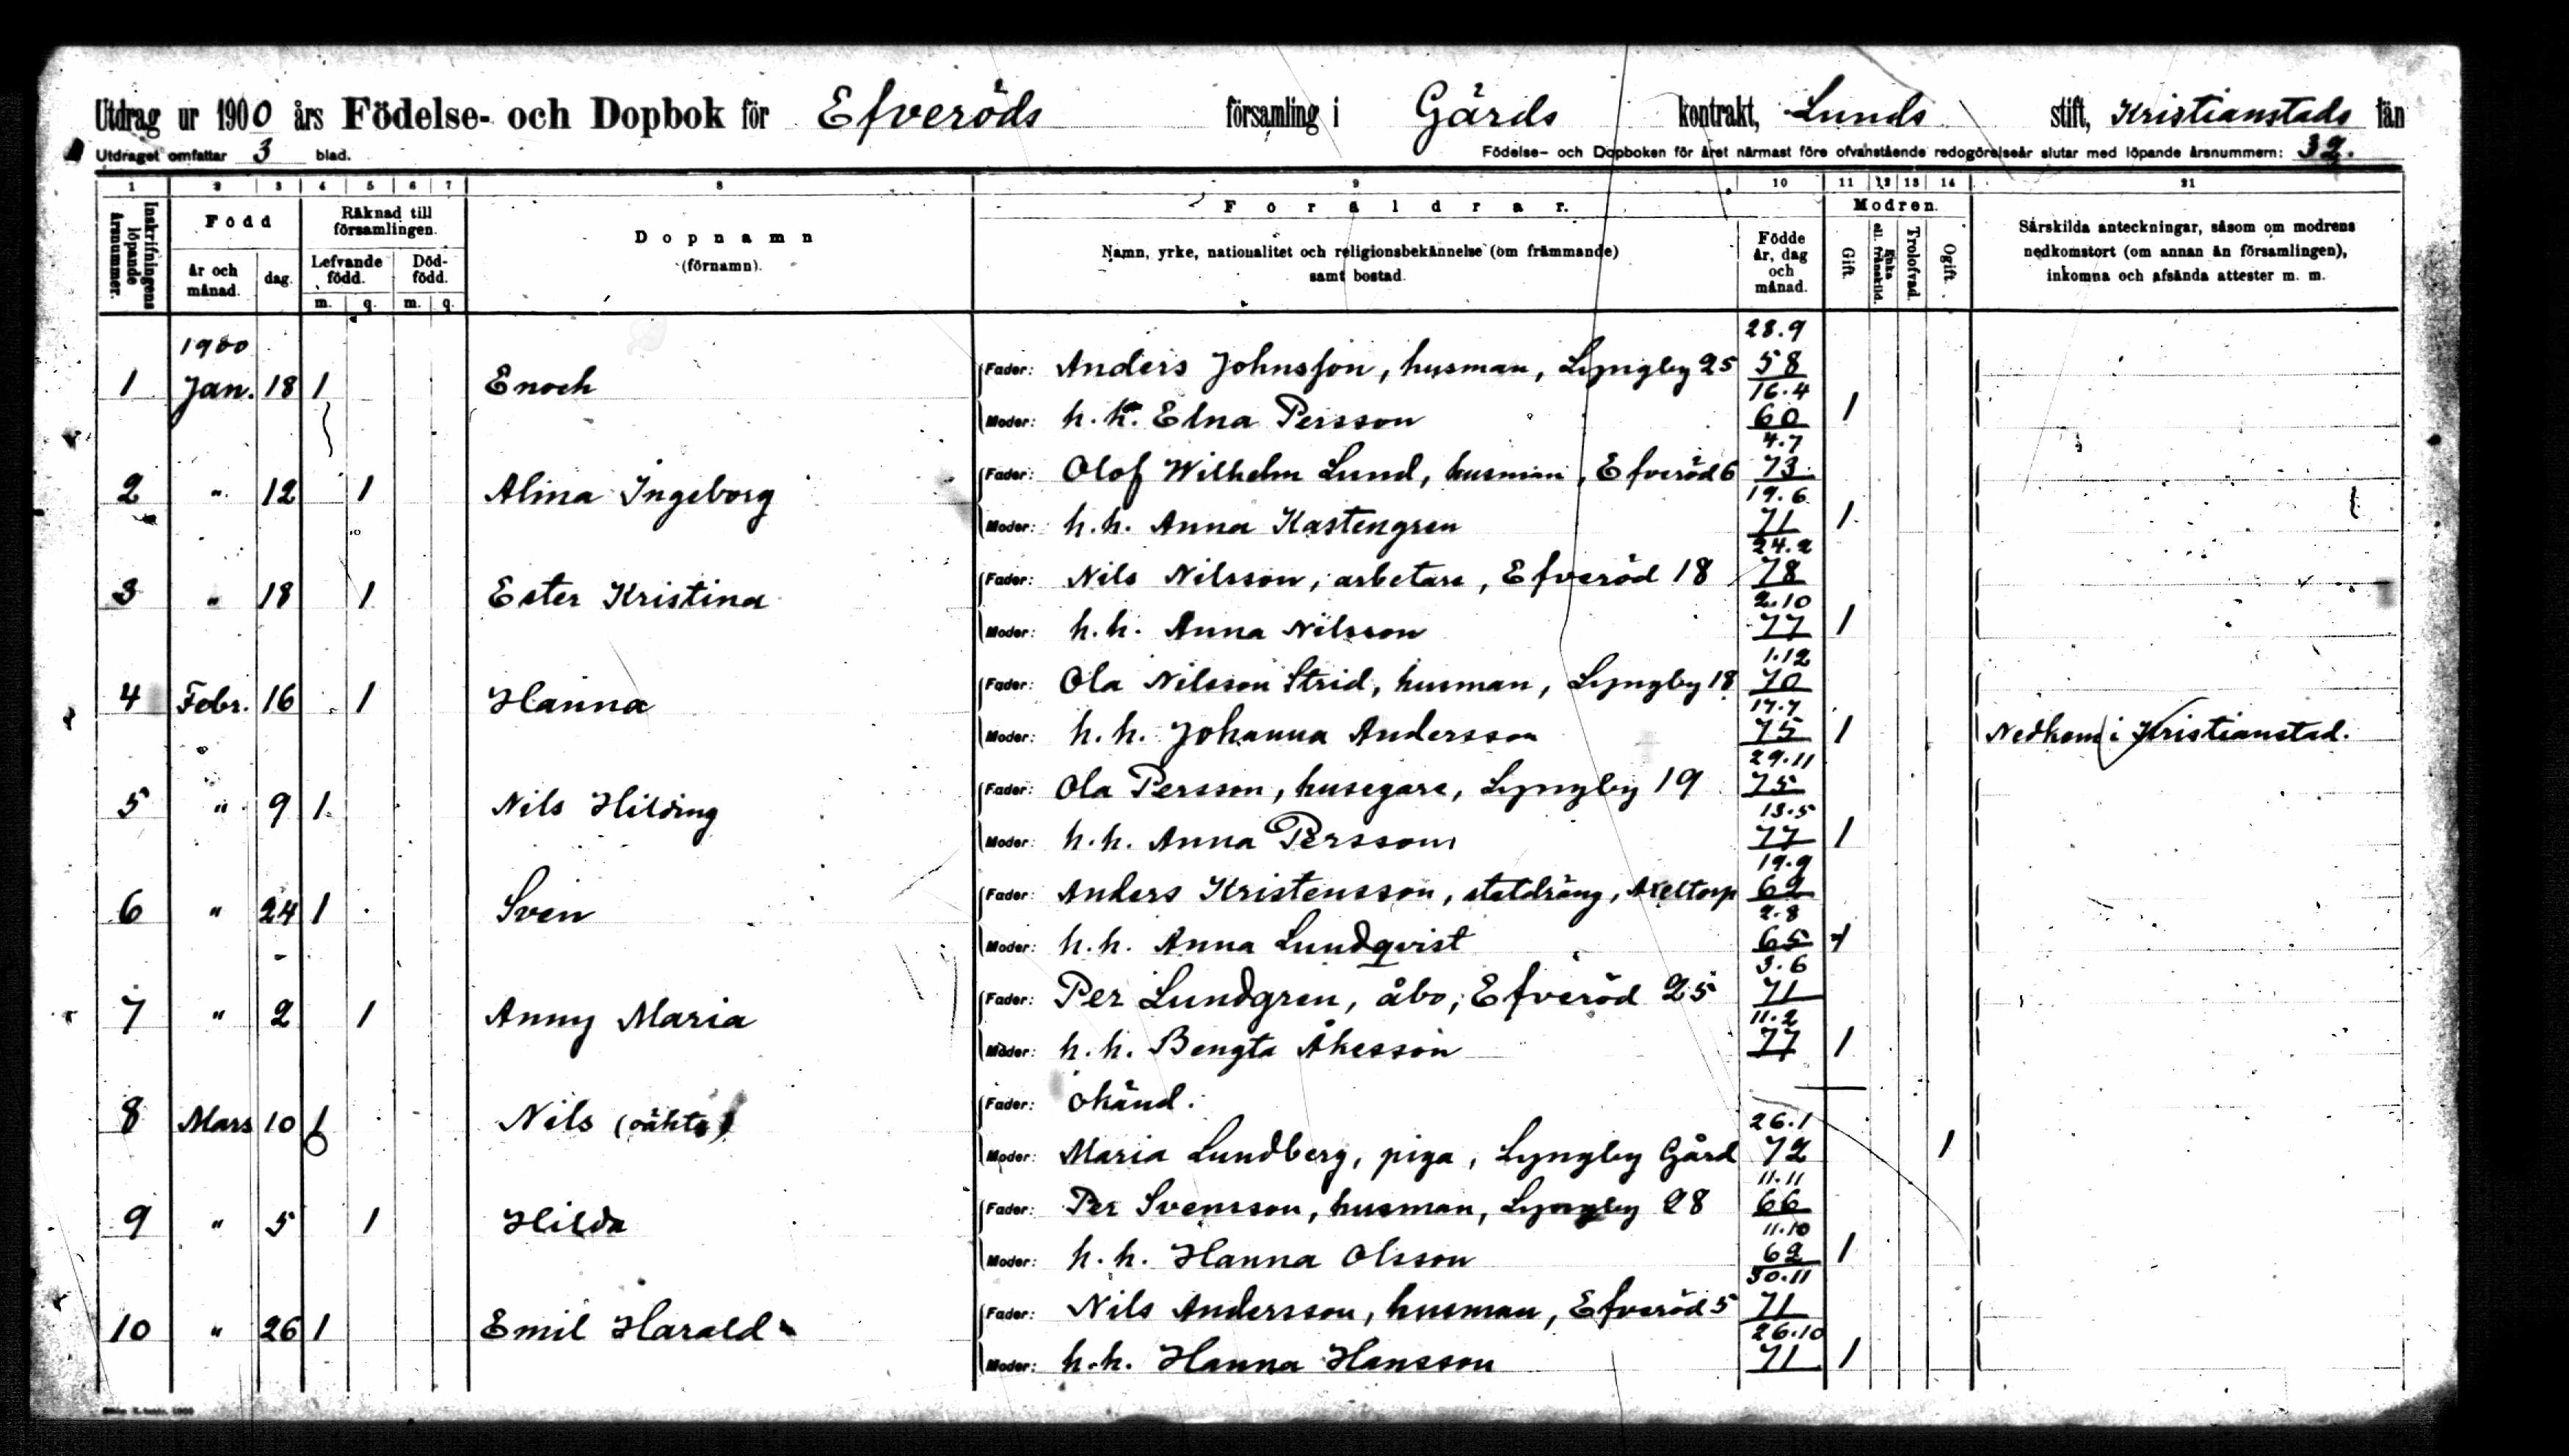 Utdrag ur 1900 års Födelse- och Dopbok för Efveröds församling i Gärds kontrakt, Lunds stift, Kristianstads län
Utdraget omfattar 3 blad. Födelse- och Dopboken för året närmast före ofvanstående redogörelseår slutar med löpande årsnummern: 32.
1 2 3 4 5 6 7 8 9 10 11 12 13 14 21
Inskrifningens löpande årsnummer. Född Räknad till församlingen. Dopnamn (förnamn). Föräldrar. Modren.
år och månad. dag. Lefvande född. Död-född. m. q. m. q.
Namn, yrke, nationalitet och religionsbekännelse (om främmande) samt bostad.
Födde år, dag och månad. Gift. Enka el. frånskild. Trolofvad. Ogift.
Särskilda anteckningar, såsom om modrens nedkomstort (om annan än församlingen), inkomna och afsända attester m. m.
1900
1 Jan. 18 1 Enoch Fader: Anders Johnsson, husman, Lyngby 25 28.9 58
Moder: h.h. Elna Persson 16.4 60 1
2 " 12 1 Alina Ingeborg Fader: Olof Wilhelm Lund, husman, Efveröd 6 4.7 73
Moder: h.h. Anna Kastengren 19.6 71 1
3 " 18 1 Ester Kristina Fader: Nils Nilsson, arbetare, Efveröd 18 24.2 78
Moder: h.h. Anna Nilsson 2.10 77 1
4 Febr. 16 1 Hanna Fader: Ola Nilsson Strid, husman, Lyngby 18 1.12 70
Moder: h.h. Johanna Andersson 17.7 75 1 Nedkom i Kristianstad.
5 " 9 1 Nils Hilding Fader: Ola Persson, husegare, Lyngby 19 29.11 75
Moder: h.h. Anna Persson 13.5 77 1
6 " 24 1 Sven Fader: Anders Kristensson, statdräng, Axeltorp 19.9 62
Moder: h.h. Anna Lundqvist 2.8 65 1
7 " 2 1 Anny Maria Fader: Per Lundgren, åbo, Efveröd 25 3.6 71
Moder: h.h. Bengta Åkesson 11.2 77 1
8 Mars 10 1 Nils (oäkta) Fader: okänd.
Moder: Maria Lundberg, piga, Lyngby Gård 26.1 72 1
9 " 5 1 Hilda Fader: Per Svensson, husman, Lyngby 28 11.11 66
Moder: h.h. Hanna Olsson 11.10 62 1
10 " 26 1 Emil Harald Fader: Nils Andersson, husman, Efveröd 5 30.11 71
Moder: h.h. Hanna Hansson 26.10 71 1